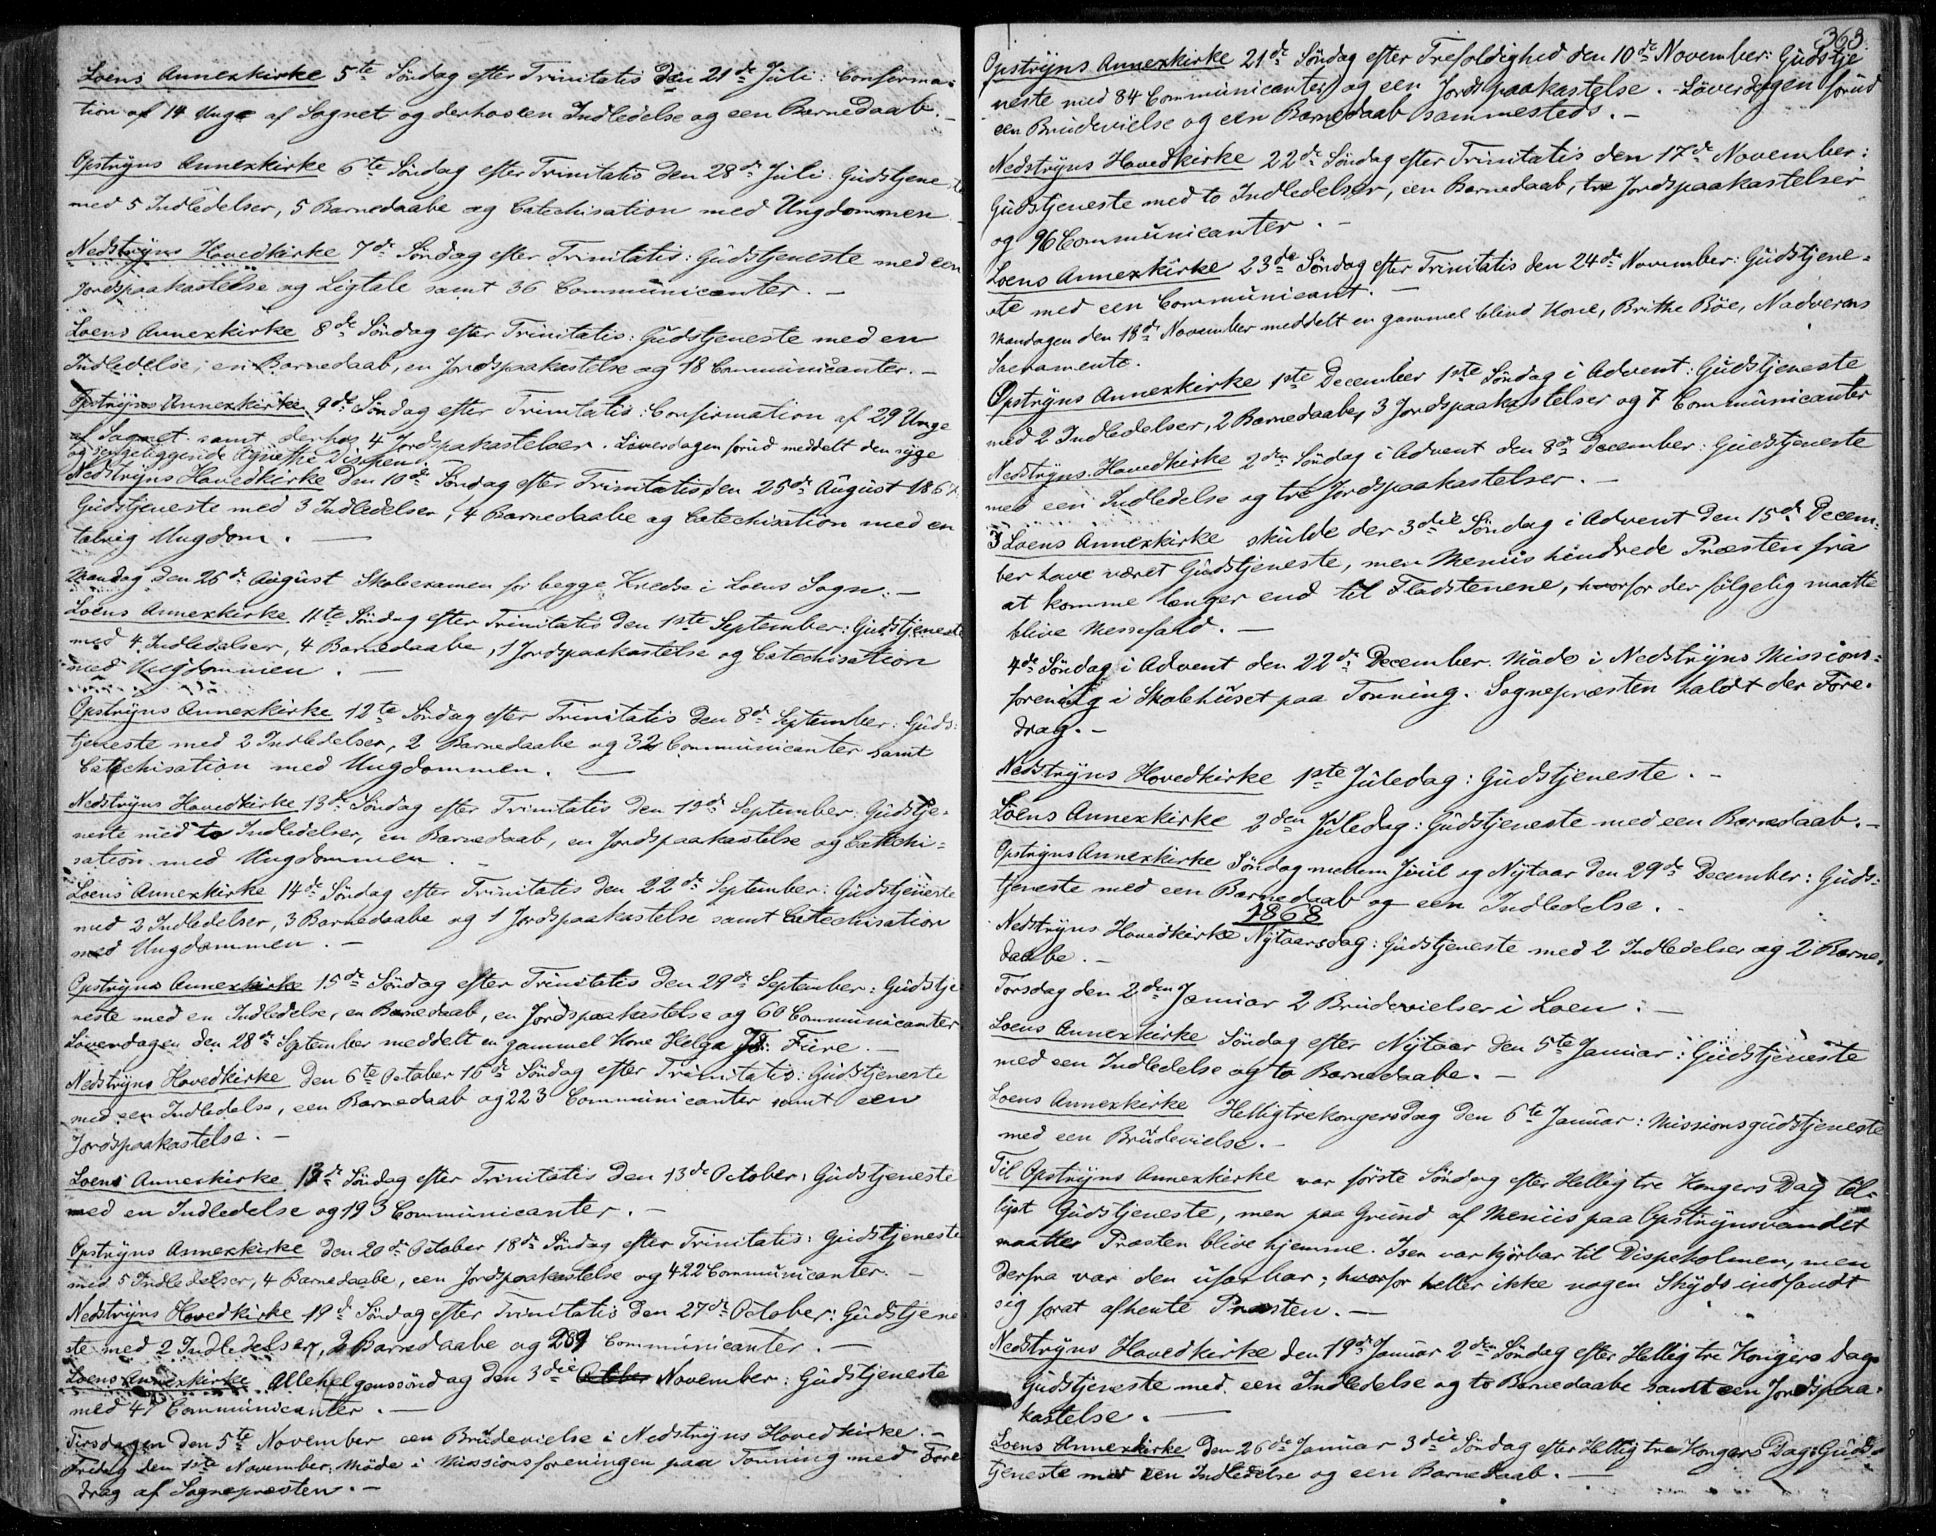 Loens Annexkirke 5te Søndag efter Trinitatis den 21de Juli: Confirma-
tion af 14 Unge af Sognet og derhos en Indledelse og een Barnedaab. –
Opstryns Annexkirke 6te Søndag efter Trinitatis den 28de Juli: Gudstjeneste
med 5 Indledelser, 5 Barnedaabe og Catechisation med Ungdommen. –
Nedstryns Hovedkirke 7de Søndag efter Trinitatis: Gudstjeneste med een
Jordspaakastelse og Ligtale samt 36 Communicanter. –
Loens Annexkirke 8de Søndag efter Trinitatis: Gudstjeneste med en
Indledelse, en Barnedaab, en Jordspaakastelse og 18 Communicanter. –
Opstryns Annexkirke 9de Søndag efter Trinitatis: Confirmation af 29 Unge
af Sognet samt derhos 4 Jordspakastelser. Löverdagen forud meddelt den syge
og sengeliggende Agnethe Dispen.
Nedstryns Hovedkirke den 10de Søndag efter Trinitatis den 25de August 1867
Gudstjeneste med 3 Indledelser, 4 Barnedaabe og Catechisation med en
talrig Ungdom. –
Mandag den 26de August Skoleexamen for begge Kredse i Loens Sogn. –
Loens Annexkirke 11te Søndag efter Trinitatis den 1ste September: Gudstjeneste
med 4 Indledelser, 4 Barnedaabe, 1 Jordspaakastelse og Catechisation
med Ungdommen. –
Opstryns Annexkirke 12te Søndag efter Trinitatis den 8de September: Guds-
tjeneste med 2 Indledelser, 2 Barnedaabe og 32 Communicanter samt
Catechisation med Ungdommen. –
Nedstryns Hovedkirke 13de Søndag efter Trinitatis den 15de September: Gudstje-
neste med to Indledelser, en Barnedaab, en Jordspaakastelse og Catechi-
sation med Ungdommen. –
Loens Annexkirke 14de Søndag efter Trinitatis den 22de September: Gudstjeneste
med 2 Indledelser, 3 Barnedaabe og 1 Jordspaakastelse samt Catechisation
med Ungdommen. –
Opstryns Annexkirke 15de Søndag efter Trinitatis den 29de September: Gudstje
neste med en Indledelse, en Barnedaab, en Jordspaakastelse og 60 Communicanter
Löverdagen den 28de September meddelt en gammel Kone Helga Fure. –
Nedstryns Hovedkirke den 6te October 16de Søndag efter Trinitatis: Gudstjeneste
med een Indledelse, een Barnedaab og 223 Communicanter samt een
Jordspaakastelse. –
Loens Annexkirke 13de Søndag efter Trinitatis den 13de October: Gudstjeneste
med en Indledelse og 193 Communicanter. –
Opstryns Annexkirke den 20de October 18de Søndag efter Trinitatis: Gudstjeneste
med 5 Indledelser, 4 Barnedaabe, een Jordspaakastelse og 422 Communicanter. –
Nedstryns Hovedkirke 19d Søndag efter Trinitatis den 27de October: Gudstjene
ste med 2 Indledelser, 2 Barnedaabe og 289 Communicanter. –
Loens Annexkirke Allehelgenssöndag den 3die November: Gudstjeneste
med 47 Communicanter. –
Tirsdagen den 5te November een Brudevielse i Nedstryns Hovedkirke. –
Fredag den 1ste November: Möde i Missionsforeningen paa Tonning med Fore
drag af Sognepresten. –
368.
Opstryns Annexkirke 21de Søndag efter Trefoldighed den 10de November: Gudstje
neste med 84 Communicanter og een Jordspaakastelse. – Löverdagen forud
een Brudevielse og een Barnedaab sammesteds. –
Nedstryns Hovedkirke 22de Søndag efter Trinitatis den 17de November:
Gudstjeneste med to Indledelser, een Barnedaab, tre Jordspaakastelser
og 96 Communicanter. –
Loens Annexkirke 23de Søndag efter Trinitatis den 24de November: Gudstjene-
ste med een Communicant. –
Mandagen den 18de November meddelt en gammel blind Kone, Brithe Böe, Nadverens
Sacramente.
Opstryns Annexkirke 1ste December 1ste Søndag i Advent: Gudstjeneste
med 2 Indledelser, 2 Barnedaabe, 3 Jordspaakastelser og 7 Communicanter
Nedstryns Hovedkirke 2den Søndag i Advent den 8de December: Gudstjeneste
med een Indledelse og tre Jordspaakastelser. –
I Loens Annexkirke skulde der 3die Søndag i Advent den 15de Decem-
ber have været Gudstjeneste, men Meniis hindrede Præsten fra
at komme længer end til Fladstenene, hvorfor der følgelig maatte
blive Messefald. –
4de Søndag i Advent den 22de December. Möde i Nedstryns Missions-
forening i Skolehuset paa Tonning. Sognepræsten holdt der Fore-
drag. –
Nedstryns Hovedkirke 1ste Juledag: Gudstjeneste. –
Loens Annexkirke 2den Juledag: Gudstjeneste med een Barnedaab. –
Opstryns Annexkirke Søndag mellem Juul og Nytaar den 29de December: Guds-
tjeneste med een Barnedaab og een Indledelse. –
1868
Nedstryns Hovedkirke Nytaarsdag: Gudstjeneste med 2 Indledelser og 2 Barne-
daabe. –
Torsdag den 2den Januar 2 Brudevielser i Loen. –
Loens Annexkirke Søndag efter Nytaar den 5te Januar: Gudstjeneste
med een Indledelse og to Barnedaabe. –
Loens Annexkirke Helligtrekongersdag den 6te Januar: Missionsgudstjeneste
med een Brudevielse. –
Til Opstryns Annexkirke var förste Søndag efter Hellig tre Kongers Dag til-
lyst Gudstjeneste, men paa Grund af Meniis paa Opstrynsvandet
maatte Præsten blive hjemme. Isen var kjörbar til Dispeholmen, men
derfra var den ufarbar; hvorfor heller ikke nogen Skyds indfandt
sig forat afhente Præsten. –
Nedstryns Hovedkirke den 19de Januar 2den Søndag efter Hellig tre Kongers Dag:
Gudstjeneste med een Indledelse og to Barnedaabe samt een Jordspaa-
kastelse. –
Loens Annexkirke den 26de Januar 3die Søndag efter Hellig tre Kongers Dag: Guds-
tjeneste med een Indledelse og een Barnedaab. –